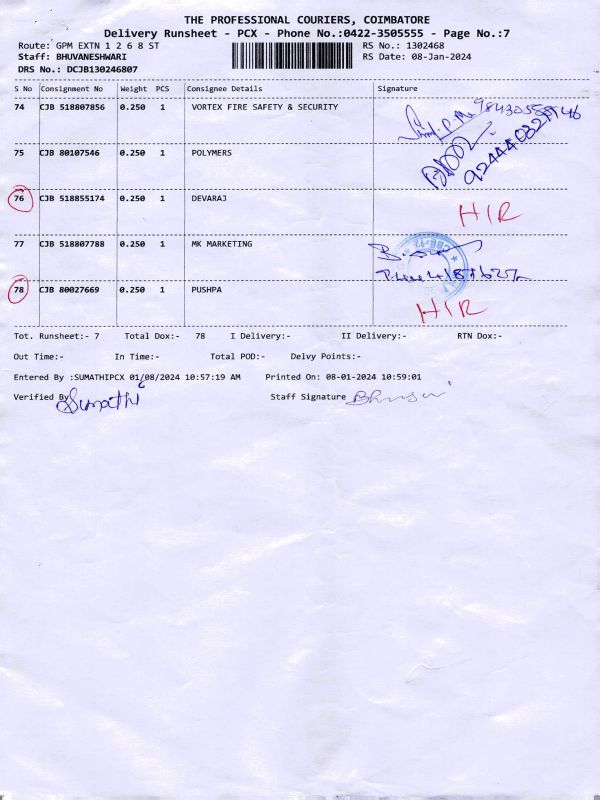 THE PROFESSIONAL COURIERS, COIMBATORE
Delivery Runsheet - PCX - Phone No.:0422-3505555 - Page No.:7
Route: GPM EXTN 1 2 6 8 ST RS No.: 1302468
Staff: BHUVANESHWARI RS Date: 08-Jan-2024
DRS No.: DCJB130246807
S No Consignment No Weight PCS Consignee Details Signature
74 CJB 518807856 0.250 1 VORTEX FIRE SAFETY & SECURITY
75 CJB 80107546 0.250 1 POLYMERS
76 CJB 518855174 0.250 1 DEVARAJ H/R
77 CJB 518807788 0.250 1 MK MARKETING
78 CJB 80027669 0.250 1 PUSHPA H/R
Tot. Runsheet:- 7 Total Dox:- 78 I Delivery:- II Delivery:- RTN Dox:-
Out Time:- In Time:- Total POD:- Delvy Points:-
Entered By :SUMATHIPCX 01/08/2024 10:57:19 AM Printed On: 08-01-2024 10:59:01
Verified By Sumathi Staff Signature